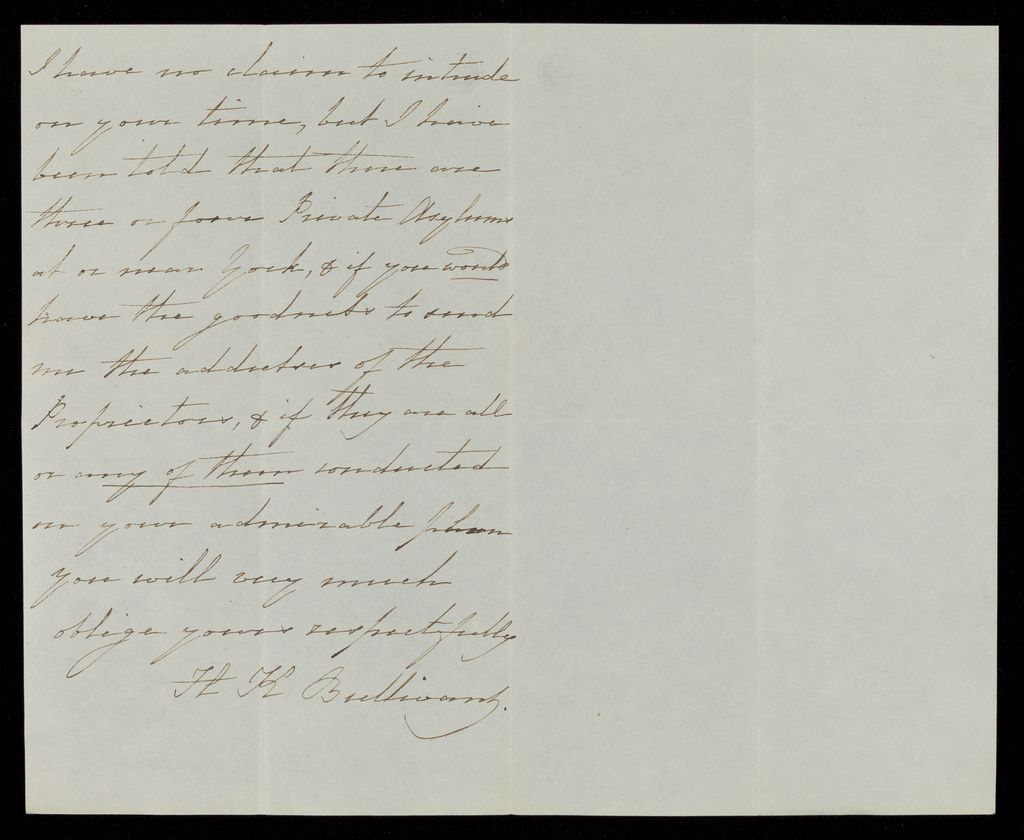 I have no claim to intrude
on your time, but I have
been told that there are
three or four Private Asylums
at or near York, & if you would
have the goodness to send
me the addresses of the
Proprietors, & if they are all
or any of them conducted
on your admirable plan
you will very much
oblige yours respectfully
H K Bullivant.